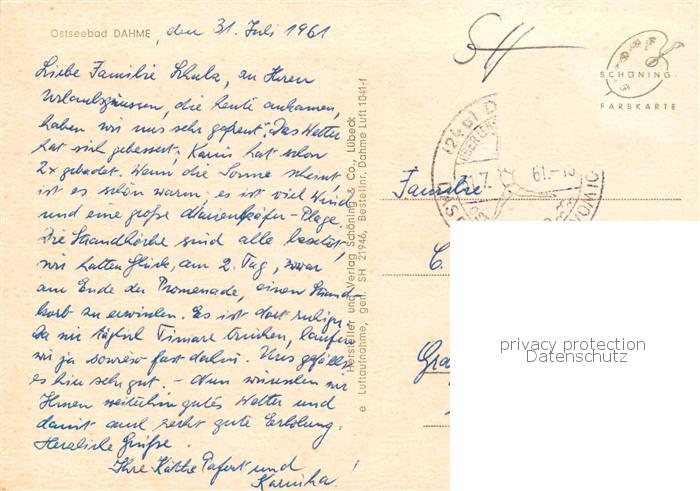 Ostseebad DAHME, den 31. Juli 1961
Liebe Familie, an Ihren
Urlaubsgrüssen, die heute ankamen,
haben wir uns sehr gefreut. Das Wetter
hat sich gebessert, Karin hat schon
2x gebadet. Wenn die Sonne scheint
ist es schön warm, es ist viel Wind
und eine große Marienkäfer-Plage.
Die Strandkörbe sind alle besetzt,
wir hatten Glück, am 2. Tag, zwar
am Ende der Promenade, einen Strand-
korb zu erwischen. Es ist dort ruhig.
Da wir täglich trinken, laufen
wir ja sowieso fast dahin. Uns gefällt
es hier sehr gut. - Nun wünschen wir
Ihnen weiterhin gutes Wetter und
damit auch recht gute Erholung.
Herzliche Grüße
Ihre Käthe und
Hersteller und Verlag Schöning & Co., Lübeck
e Luftaufnahme, gen. SH 21946, Bestellnr. Dahme Luft 1041-f
SCHÖNING-
FARBKARTE
Familie
C.
privacy protection
Datenschutz